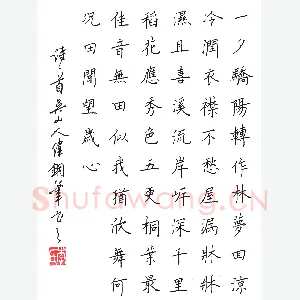 一夕驕陽轉作林夢回涼
冷潤衣襟不愁屋漏牀牀
濕且喜溪流岸岸深千里
稻花應秀色五更桐葉最
佳音無田似我猶欣舞何
況田間望歲心
詩一首山人偉鋼筆書之